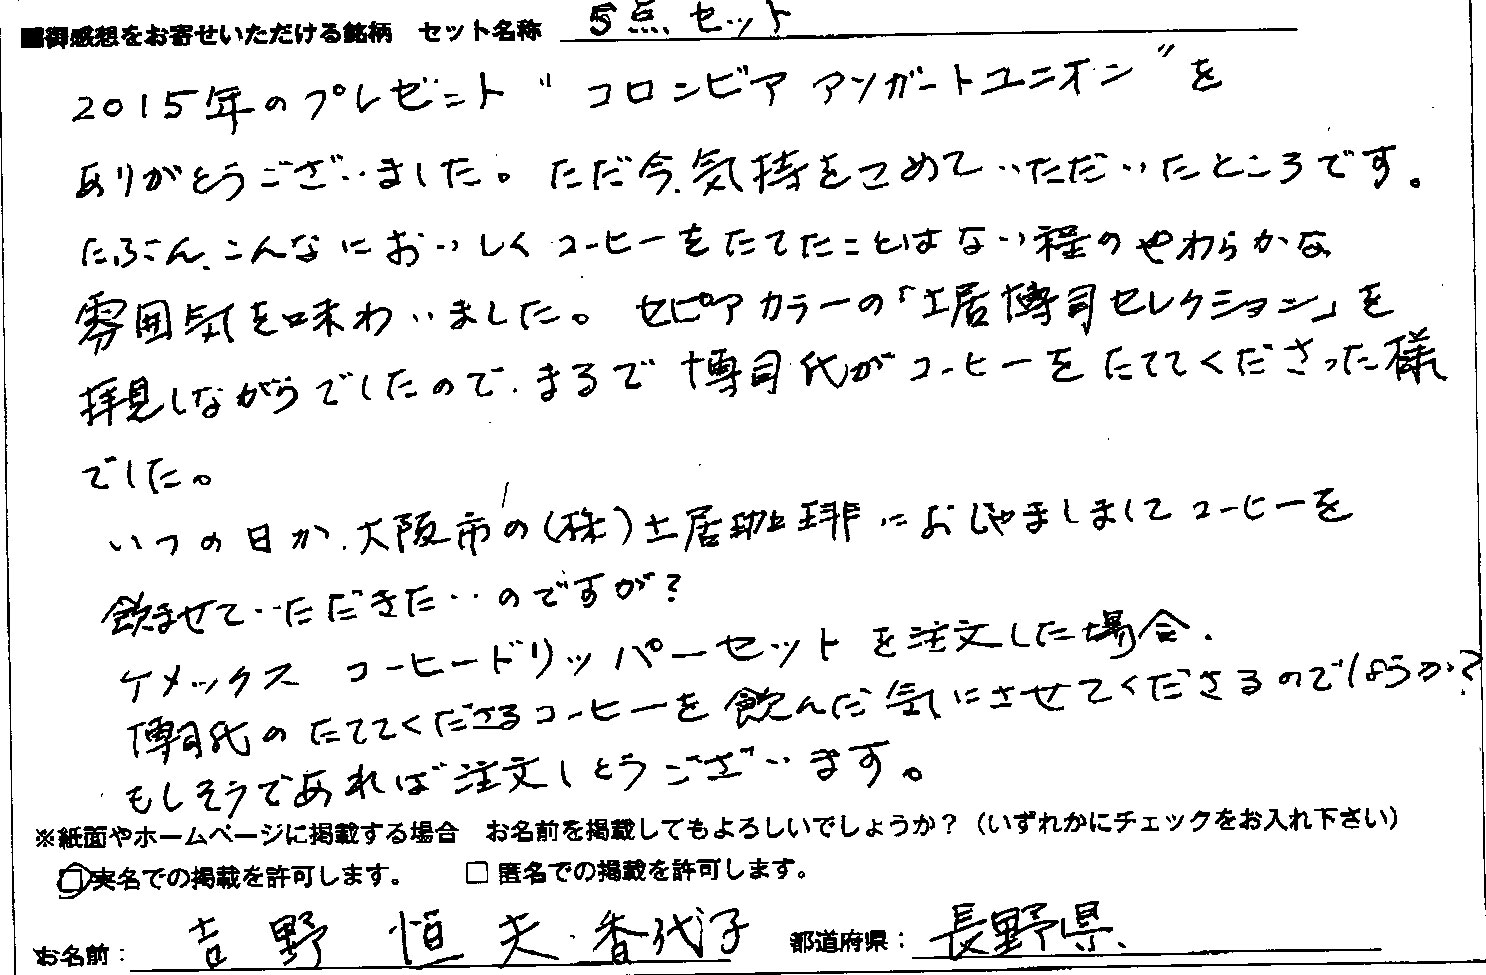 ■御感想をお寄せいただける銘柄　セット名称　5点セット
2015年のプレゼント〝コロンビア アンガートユニオン〟を
ありがとうございました。ただ今、気持をこめていただいたところです。
たぶん、こんなにおいしくコーヒーをたてたことはない程のやわらかな
雰囲気を味わいました。セピアカラーの「土居博司セレクション」を
拝見しながらでしたので、まるで博司氏がコーヒーをたててくださった様
でした。
いつの日か、大阪市の(株)土居珈琲におじゃましましてコーヒーを
飲ませていただきたいのですが?
ケメックス　コーヒードリッパーセットを注文した場合、
博司氏のたててくださるコーヒーを飲んだ気にさせてくださるのでしょうか?
もしそうであれば注文しとうございます。
※紙面やホームページに掲載する場合　お名前を掲載してもよろしいでしょうか?（いずれかにチェックをお入れ下さい）
□実名での掲載を許可します。　□匿名での掲載を許可します。
お名前：吉野 恒夫・香代子　都道府県：長野県